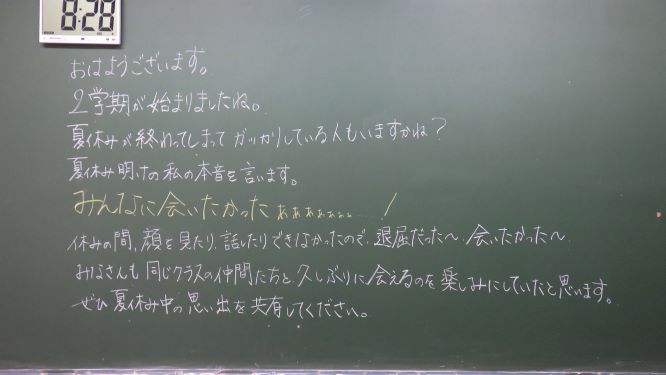 8:28
おはようございます。
2学期が始まりましたね。
夏休みが終わってしまってガッカリしている人もいますかね？
夏休み明けの私の本音を言います。
みんなに会いたかったぁぁぁぁぁぁ……！
休みの間、顔を見たり、話したりできなかったので、退屈だった〜 会いたかった〜
みなさんも同じクラスの仲間たちと、久しぶりに会えるのを楽しみにしていたと思います。
ぜひ夏休み中の思い出を共有してください。